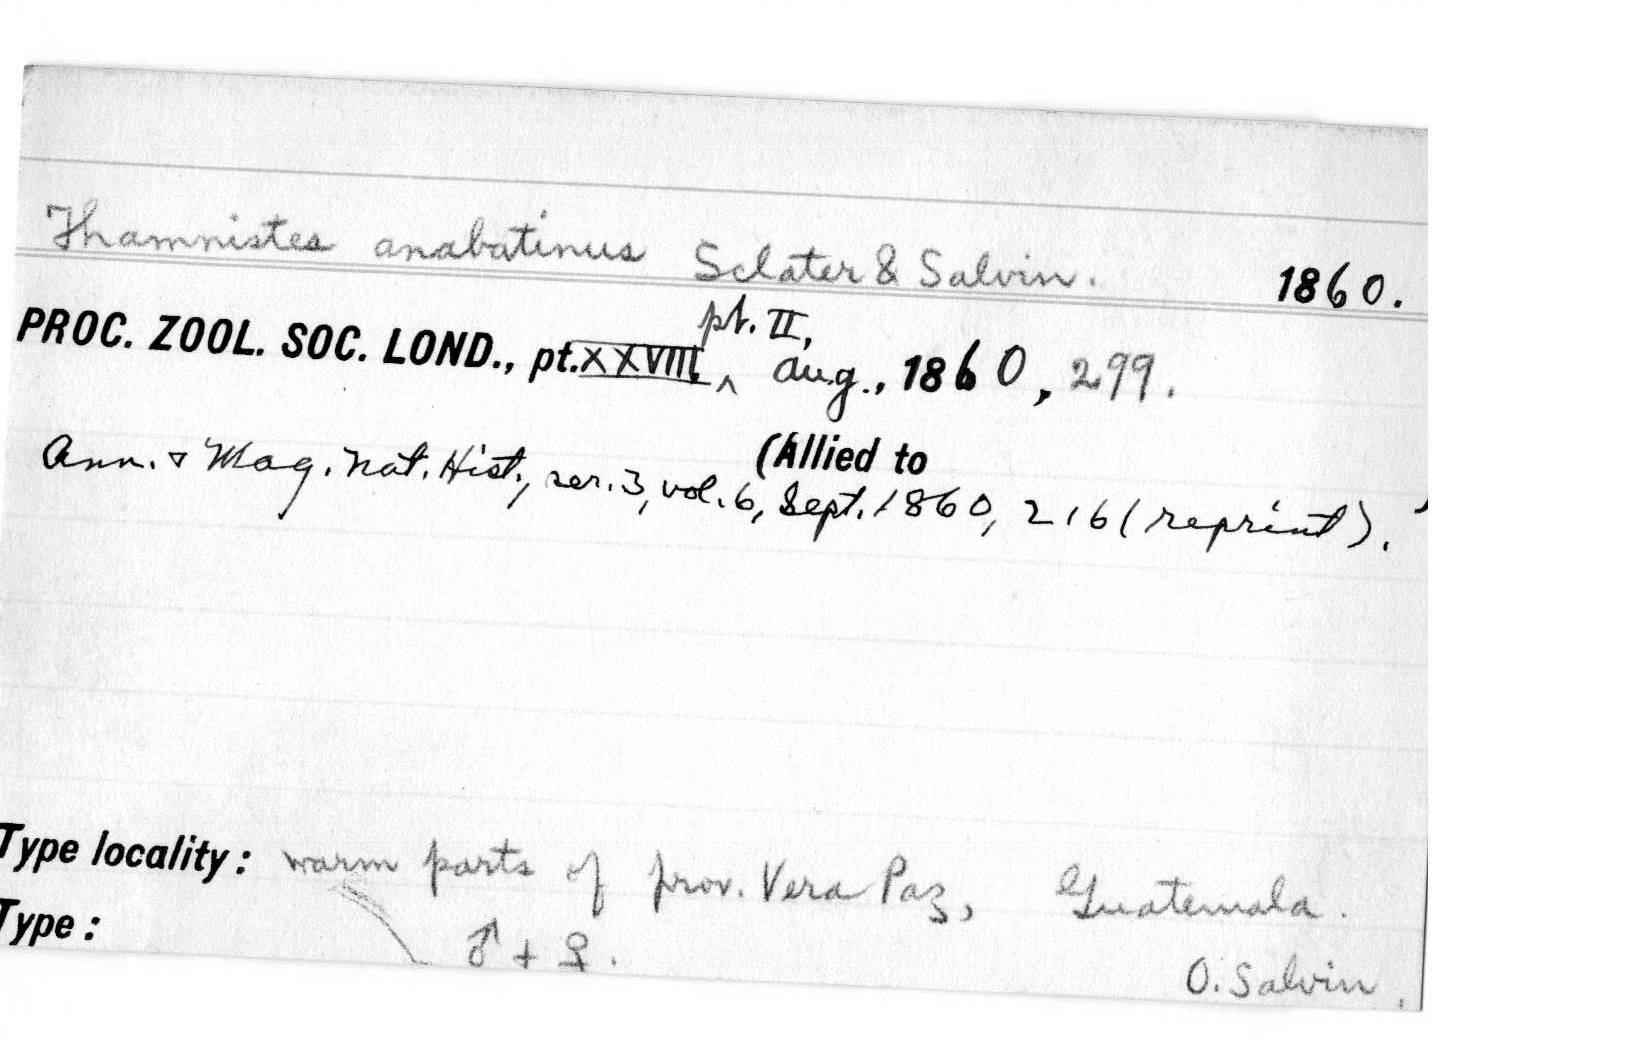 Thamnistes anabatinus Sclater & Salvin. 1860.
pt. II,
PROC. ZOOL. SOC. LOND., pt. XXVIII, ^ Aug., 1860, 299.
(Allied to
Ann. & Mag. Nat. Hist., ser. 3, vol. 6, Sept. 1860, 216 (reprint).
Type locality: warm parts of prov. Vera Paz, Guatemala.
Type: ♂ + ♀. O. Salvin.